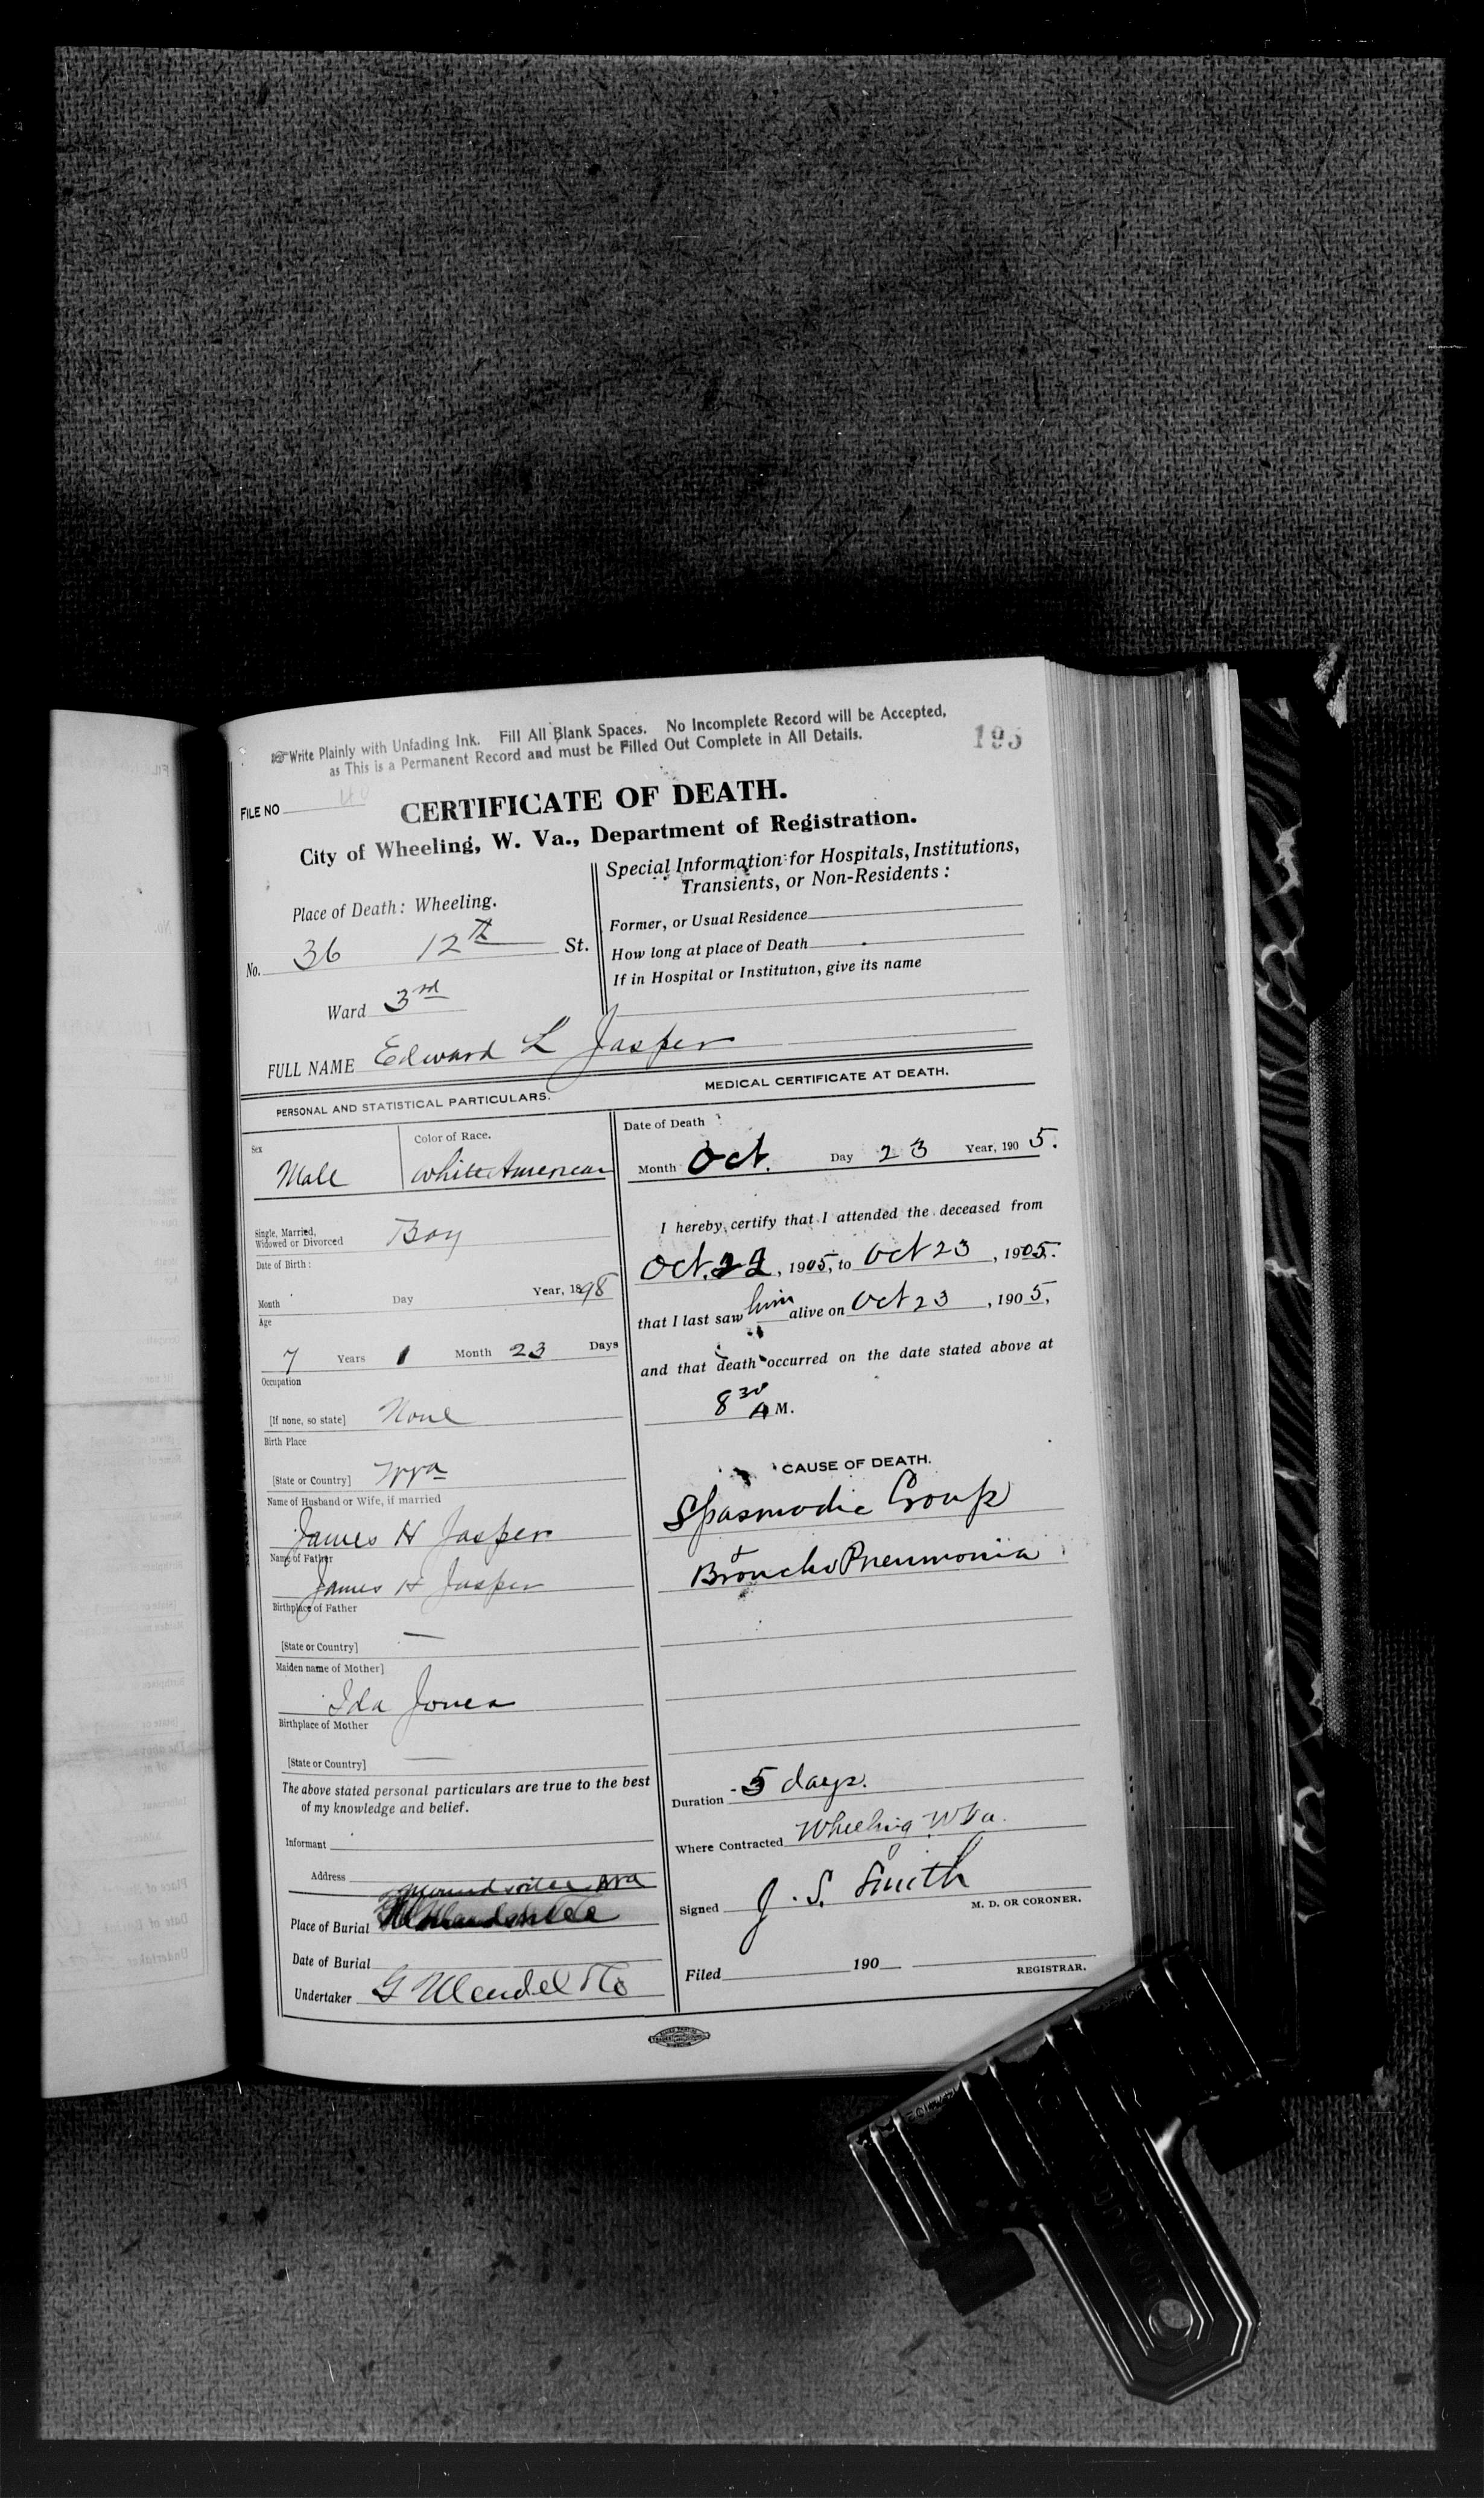 Write Plainly with Unfading Ink. Fill All Blank Spaces. No Incomplete Record will be Accepted,
as This is a Permanent Record and must be Filled Out Complete in All Details.
195
FILE NO
CERTIFICATE OF DEATH.
City of Wheeling, W. Va., Department of Registration.
Place of Death: Wheeling.
No. 36 12th St.
Ward 3rd
Special Information for Hospitals, Institutions,
Transients, or Non-Residents:
Former, or Usual Residence
How long at place of Death
If in Hospital or Institution, give its name
FULL NAME Edward L Jasper
PERSONAL AND STATISTICAL PARTICULARS.
Sex
Male
Color of Race.
White American
Single, Married,
Widowed or Divorced Boy
Date of Birth:
Month Day Year, 1898
Age
7 Years 1 Month 23 Days
Occupation
[If none, so state] None
Birth Place
[State or Country] WVa
Name of Husband or Wife, if married
James H Jasper
Name of Father
James H Jasper
Birthplace of Father
[State or Country] —
Maiden name of Mother]
Ida Jones
Birthplace of Mother
[State or Country] —
The above stated personal particulars are true to the best
of my knowledge and belief.
Informant
Address
Moundsville WVa
Place of Burial
Date of Burial
Undertaker G Mendel & Co
MEDICAL CERTIFICATE AT DEATH.
Date of Death
Month Oct. Day 23 Year, 1905.
I hereby certify that I attended the deceased from
Oct. 22, 1905, to Oct 23, 1905.
that I last saw him alive on Oct 23, 1905,
and that death occurred on the date stated above at
8 30 A M.
CAUSE OF DEATH.
Spasmodic Croup
+
Broncho Pneumonia
Duration 5 days.
Where Contracted Wheeling W Va.
Signed J. S. Smith
M. D. OR CORONER.
Filed 190
REGISTRAR.